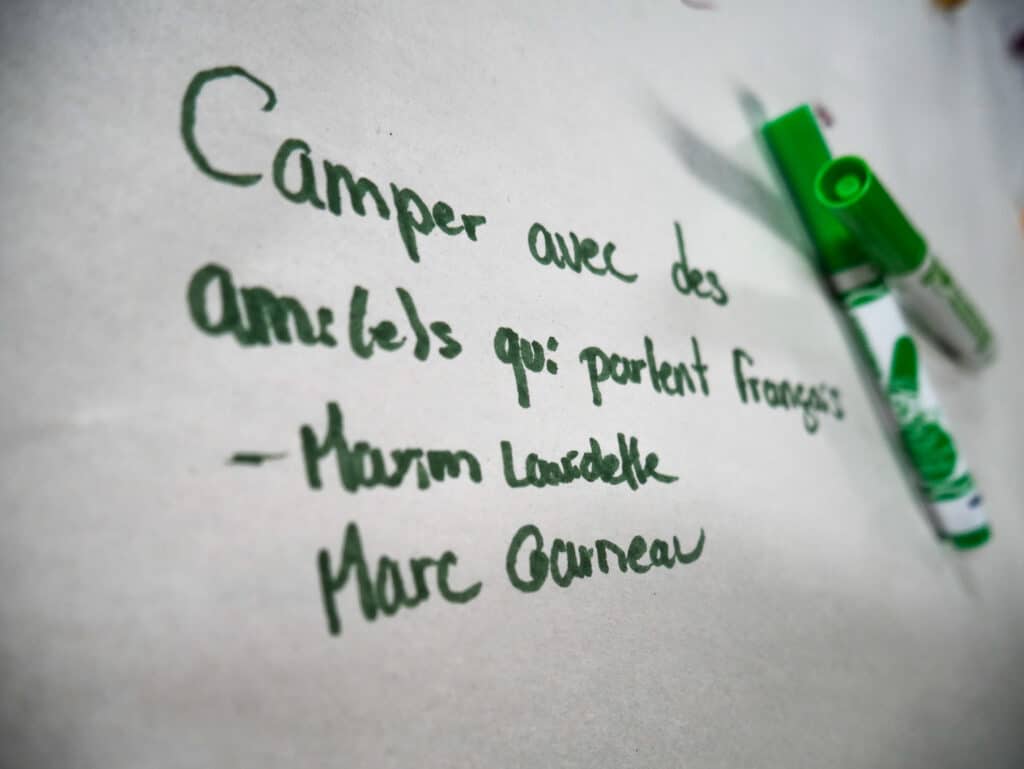 Camper avec des
ami(e)s qui parlent français
- Marim
Marc Garneau